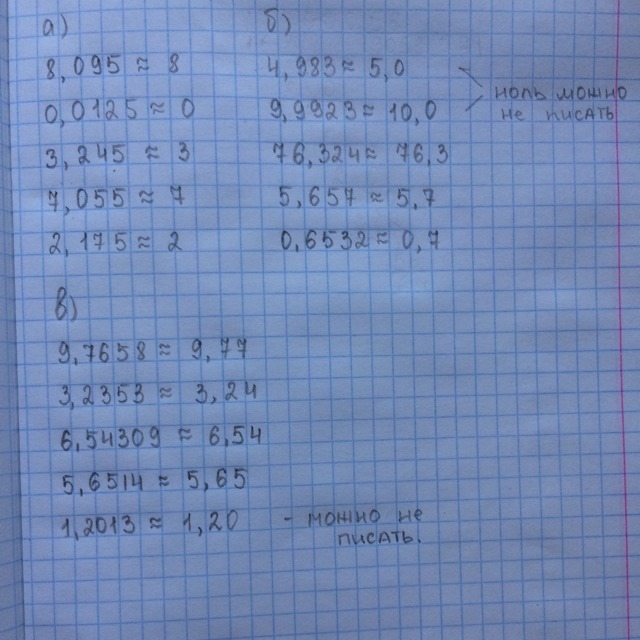 а) б)
8,095 ≈ 8 4,983 ≈ 5,0
0,0125 ≈ 0 9,9923 ≈ 10,0
ноль можно
не писать
3,245 ≈ 3 76,324 ≈ 76,3
7,055 ≈ 7 5,657 ≈ 5,7
2,175 ≈ 2 0,6532 ≈ 0,7
в)
9,7658 ≈ 9,77
3,2353 ≈ 3,24
6,54309 ≈ 6,54
5,6514 ≈ 5,65
1,2013 ≈ 1,20 - можно не
писать.